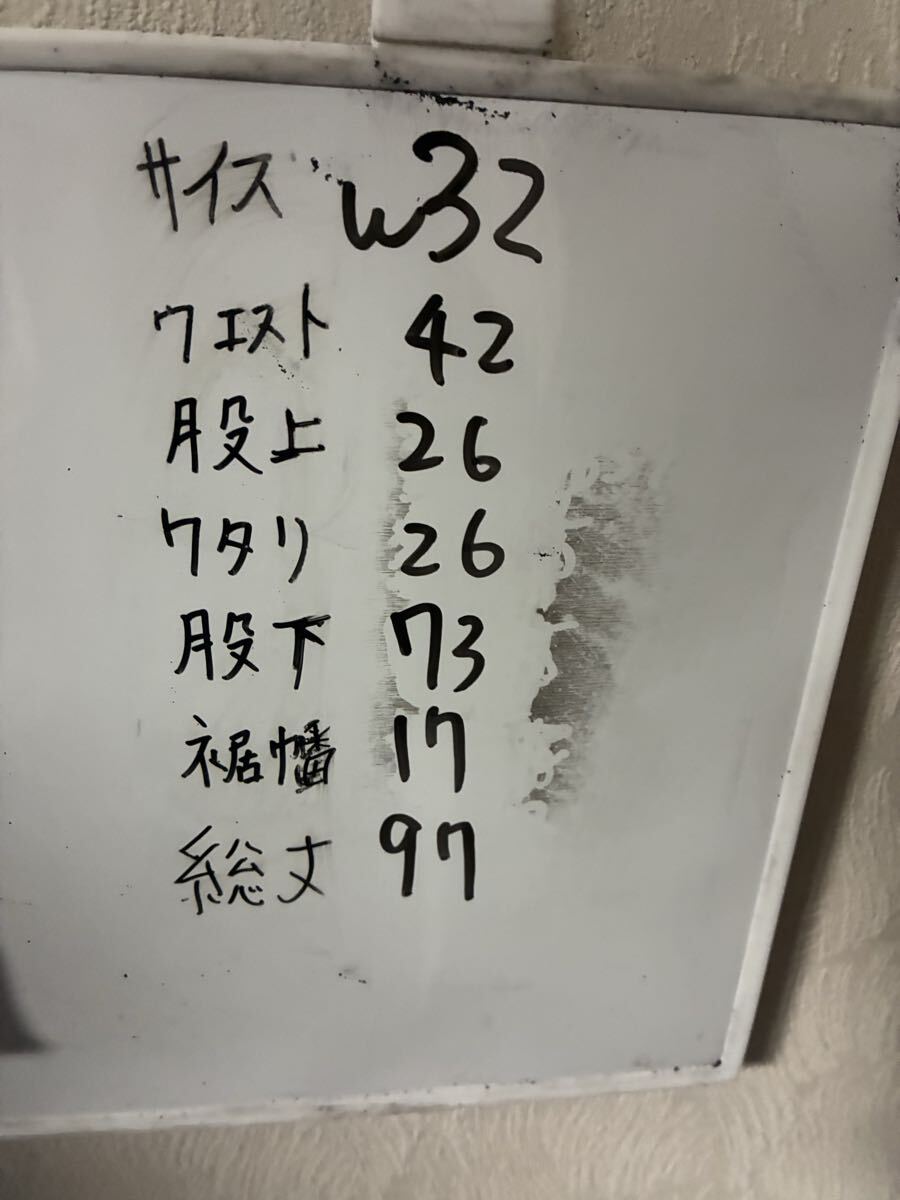 サイズ w32
ウエスト 42
股上 26
ワタリ 26
股下 73
裾幡 17
総丈 97